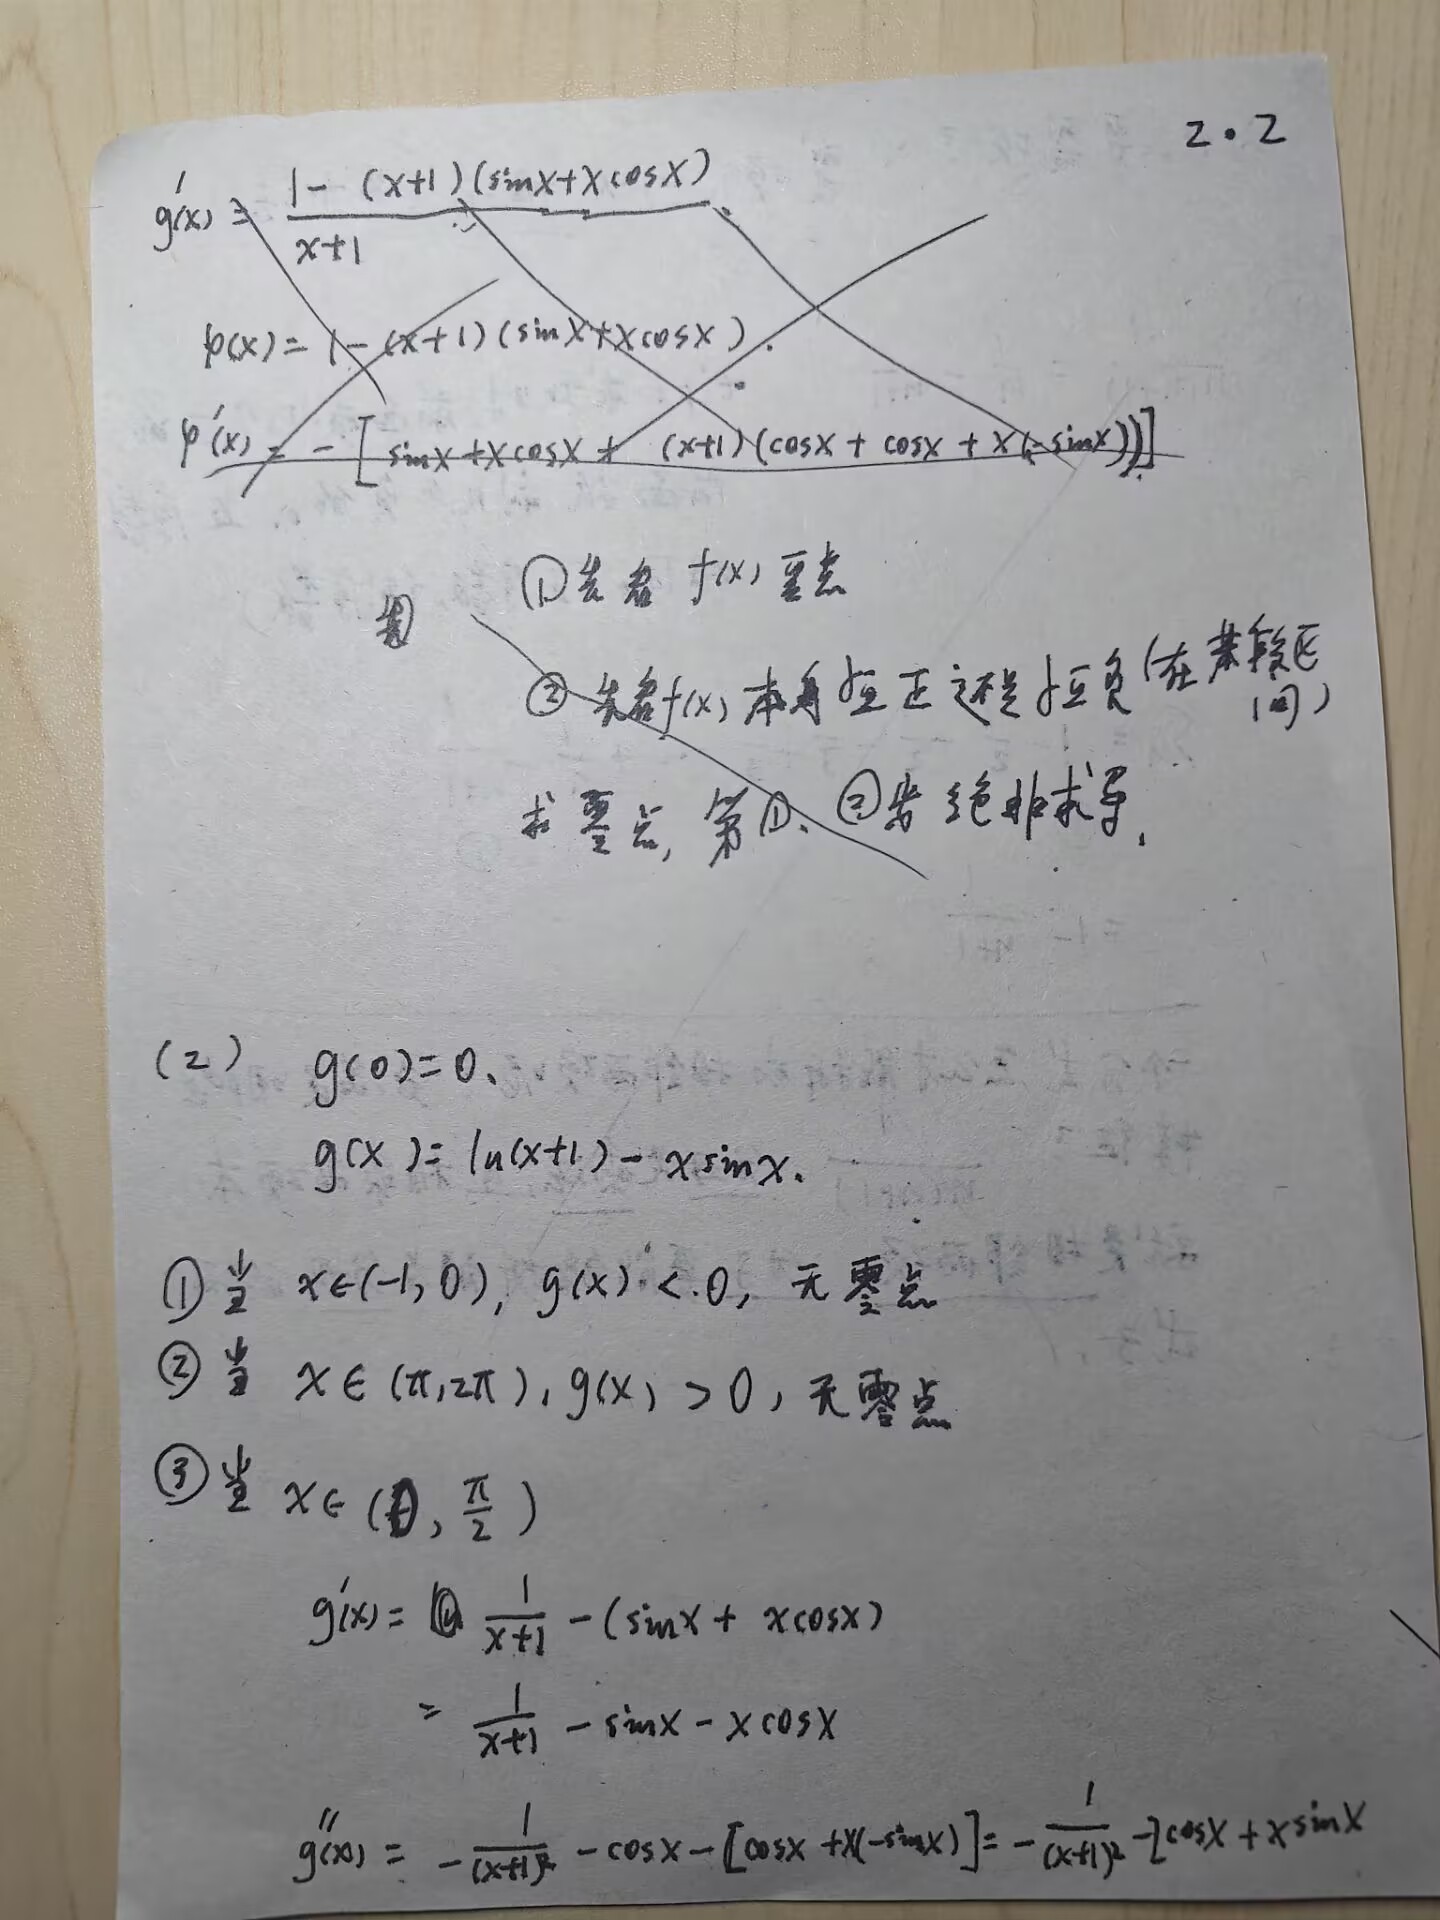 2.2
g'(x) = \frac{1-(x+1)(sinx+xcosx)}{x+1}.
φ(x) = 1-(x+1)(sinx+xcosx).
φ'(x) = -[sinx+xcosx+(x+1)(cosx+cosx+x(-sinx))].
①先看 f(x) 零点
②先看f(x)本身恒正还是恒负(在某段区间)
求零点, 第①、②步绝非求导.
(2) g(0)=0.
g(x)=ln(x+1)-xsinx.
①当 x∈(-1,0), g(x)<0, 无零点
②当 x∈(π,2π), g(x)>0, 无零点
③当 x∈(0, \frac{π}{2})
g'(x)= \frac{1}{x+1} -(sinx+xcosx)
= \frac{1}{x+1} -sinx-xcosx
g''(x) = -\frac{1}{(x+1)²} -cosx-[cosx+x(-sinx)]=-\frac{1}{(x+1)²}-2cosx+xsinx